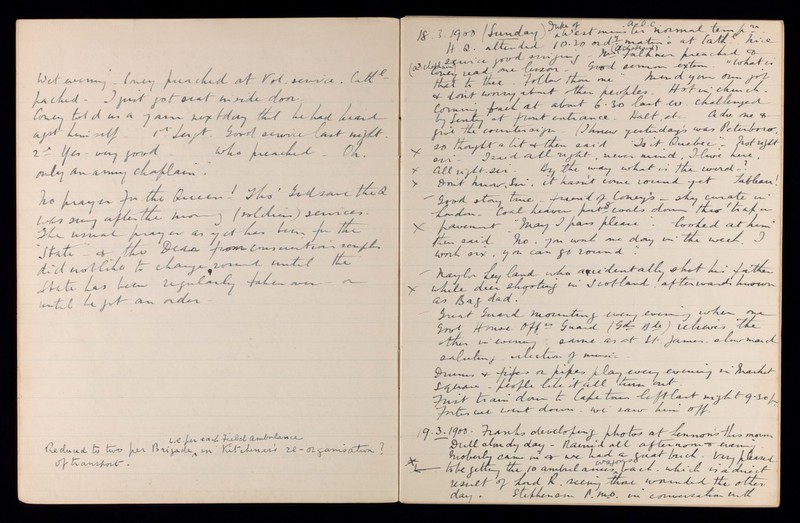 Wet evening. Coney preached at Vol. service. Cathl
packed. I just got seat inside door.
Coney told us a yarn next day that he had heard
agst himself. 1st Sergt. Good service last night.
2nd Yes very good who preached Oh.
only an army chaplain".
No prayer for the Queen! Tho' God save the Q
was sung after the morng (soldiers) services.
The usual prayer as yet has been for the
'State' - & the Dean from conscientious scruples
did not like to change round until the
State has been regularly taken over - or
until he got an order.
i.e for each Field ambulance
Reduced to two per Brigade, in Kitchener's re-organisation?
of transport.
18.3.1900 (Sunday) normal tempre
H.Q. attended 10.30 matins at Cathl. Nice
service good singing. preached &
Coney read one lesson. Good sermon extem. "What is
that to thee follow thou me" mend your own
& don't worry about other peoples. Hot in church.
Coming back at about 6.30 last ev. challenged
by Sentry at front entrance. Halt, et. Adv. one &
give the countersign. I knew yesterday's was Peterboro,
so thought a bit & then said "Is it Quebec". Not right
sir. I said all right, never mind, I live here,
All right. Sir. By the way what is the word?
Don't know, Sir, it hasn't come round yet Tableau!
- Good story time - friend of Coney's - shy curate in
London. Coal heaver putg coals down thro' trap in
pavement "May I pass please". Looked at him
then said No. you work one day in the week, I
work six, you can go round".
- Naylor Leyland who accidentally shot his father
while deer shooting in Scotland. afterwards known
as Bag dad.
Great Guard mounting every evening when one
Govt House Offrs Guard (Gds Bde) relieves the
other in evening: same as at St James. slow march
saluting selection of music.
Drums & fifes or pipes play every evening in Market
Square - people like it all turn out.
First train down to Cape town left last night 9.30 p
Fortescue went down. we saw him off.
19.3.1900. Franks developing photos at Lennon's this morng
Dull cloudy day - Rain'd all afternoon & evening
Moberly came in & we had a great buck. Very pleased
to be getting the 10 ambulances wagons back. which is a direct
result of Lord R. seeing those wounded the other
day. Stephenson P.M.O. in conversation with